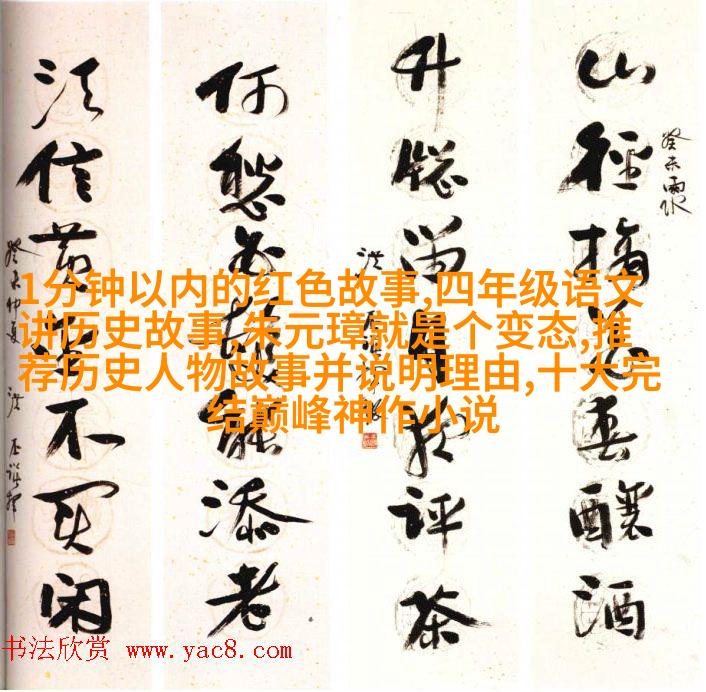 1分钟以内的红色故事,四年级语文
讲历史故事,朱元璋就是个变态,推
荐历史人物故事并说明理由,十大完
结巅峰神作小说
山径摘花春酿酒
癸未雨水
竹窗留月夜评茶
何愁白发能添老
须信黄金不买闲
癸未仲夏 洪丕谟
书法欣赏 www.yac8.com